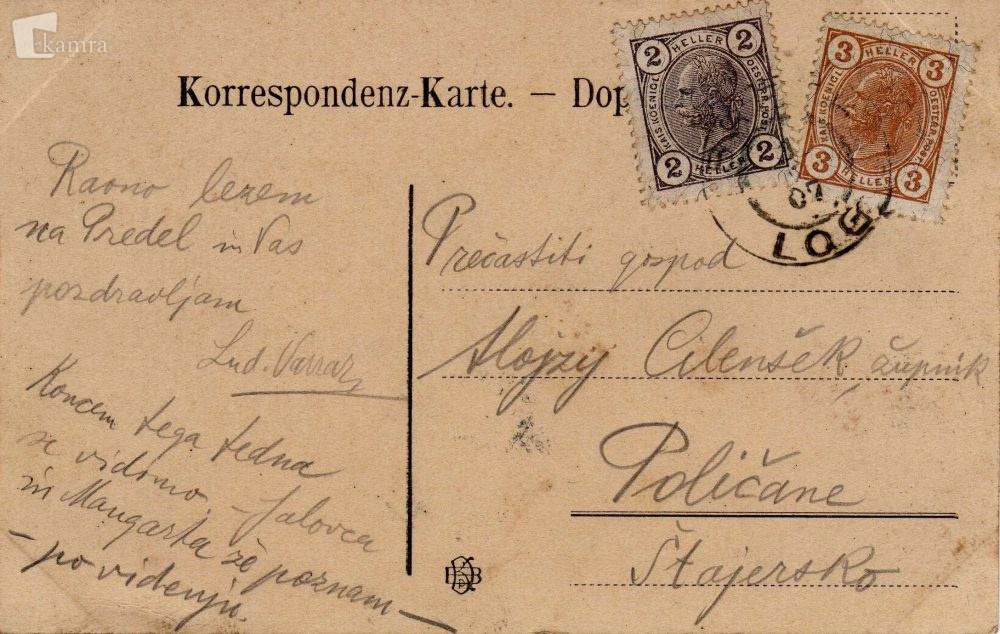 kamra
Korrespondenz-Karte. — Dop
2 HELLER 2
KAIS. KOENIGL. OESTERR. POST
2 HELLER 2
3 HELLER 3
KAIS. KOENIGL. OESTERR. POST
3 HELLER 3
07
LOG
Ravno lezem
na Predel in Vas
pozdravljam
Lud.
Koncem tega tedna
se vidimo. – Jalovca
in Mangarta že poznam –
– po videnju.
Prečastiti gospod
Alojzy Cilenšek, župnik
Poličane
Štajersko